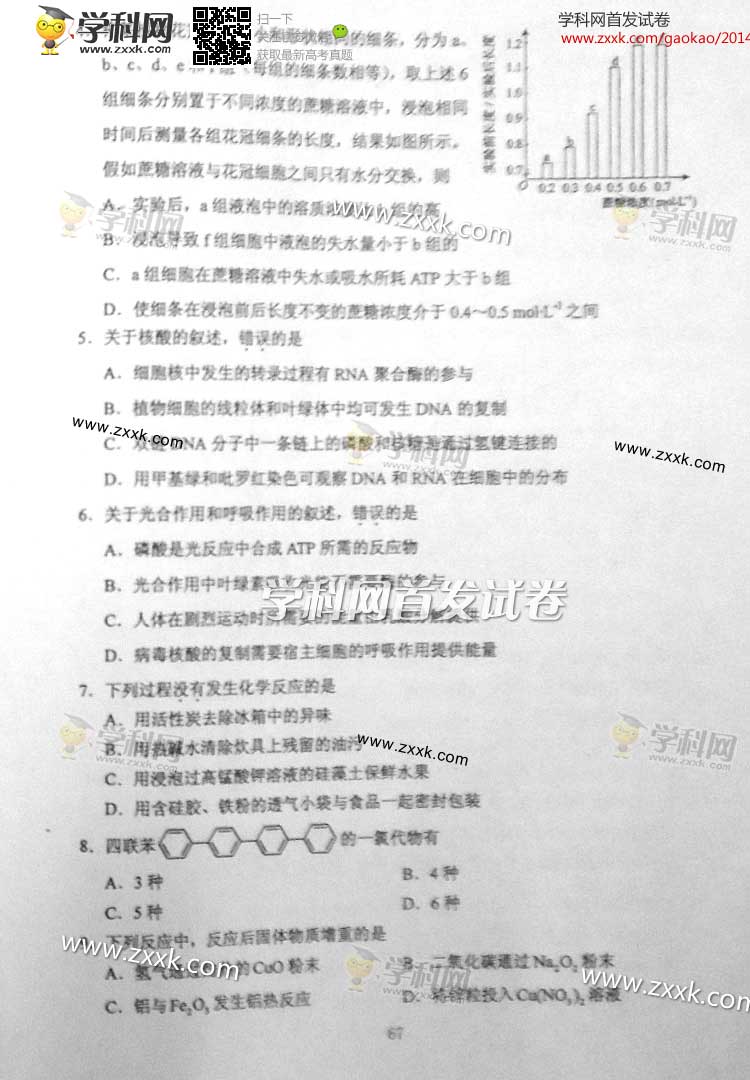 学科网
www.zxxk.com
扫一下
获取最新高考真题
学科网首发试卷
www.zxxk.com/gaokao/2014
的细条，分为 a、
b、c、d、e
每组的细条数相等），取上述 6
组细条分别置于不同浓度的蔗糖溶液中，浸泡相同
时间后测量各组花冠细条的长度，结果如图所示。
假如蔗糖溶液与花冠细胞之间只有水分交换，则
实验前长度/实验后长度
1.2
1.1
1.0
0.9
0.8
0.7
a
b
c
d
0
0.2 0.3 0.4 0.5 0.6 0.7
蔗糖浓度(mol·L⁻¹)
A．实验后，a 组液泡中的溶质浓度比 b 组的高
B．浸泡导致 f 组细胞中液泡的失水量小于 b 组的
C．a 组细胞在蔗糖溶液中失水或吸水所耗 ATP 大于 b 组
D．使细条在浸泡前后长度不变的蔗糖浓度介于 0.4～0.5 mol·L⁻¹ 之间
5．关于核酸的叙述，错误的是
A．细胞核中发生的转录过程有 RNA 聚合酶的参与
B．植物细胞的线粒体和叶绿体中均可发生 DNA 的复制
C．双链 DNA 分子中一条链上的磷酸和核糖是通过氢键连接的
D．用甲基绿和吡罗红染色可观察 DNA 和 RNA 在细胞中的分布
6．关于光合作用和呼吸作用的叙述，错误的是
A．磷酸是光反应中合成 ATP 所需的反应物
B．光合作用中叶绿素
的参与
C．人体在剧烈运动时
D．病毒核酸的复制需要宿主细胞的呼吸作用提供能量
7．下列过程没有发生化学反应的是
A．用活性炭去除冰箱中的异味
B．用热碱水清除炊具上残留的油污
C．用浸泡过高锰酸钾溶液的硅藻土保鲜水果
D．用含硅胶、铁粉的透气小袋与食品一起密封包装
8．四联苯
的一氯代物有
A．3 种
B．4 种
C．5 种
D．6 种
下列反应中，反应后固体物质增重的是
A．氢气通过
的 CuO 粉末
B．二氧化碳通过 Na₂O₂ 粉末
C．铝与 Fe₂O₃ 发生铝热反应
D．将锌粒投入 Cu(NO₃)₂ 溶液
67
学科网
zxxk.com
www.zxxk.com
学科网
zxxk.com
www.zxxk.com
学科网
zxxk.com
www.zxxk.com
学科网首发试卷
学科网
zxxk.com
www.zxxk.com
学科网
zxxk.com
www.zxxk.com
学科网
zxxk.com
www.zxxk.com